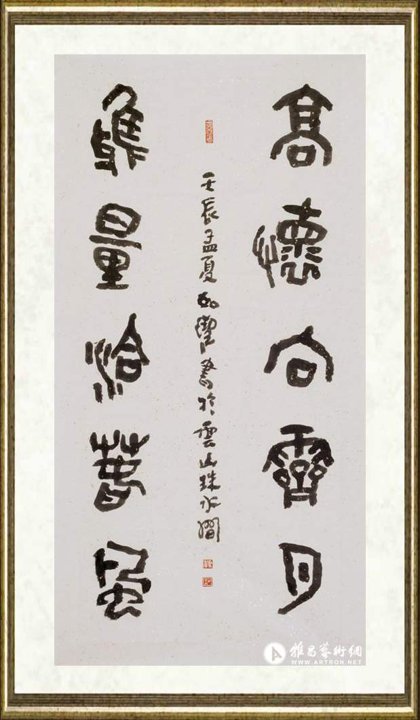 高懷向霽月
壬辰孟夏書於雲山珠水間
雅量洽春風
雅昌藝術網
WWW.ARTRON.NET